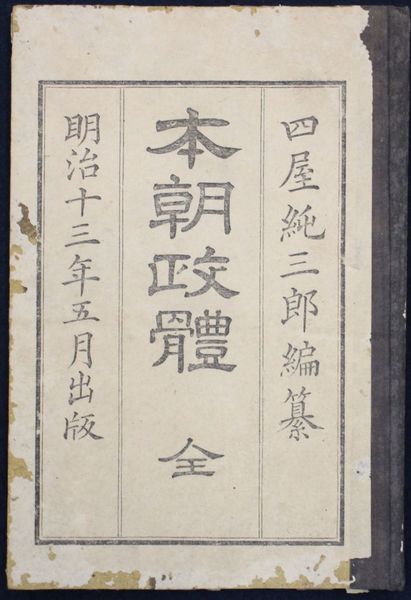 四屋純三郎編纂
本朝政體 全
明治十三年五月出版